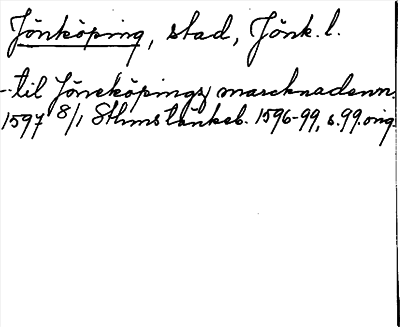 Jönköping, stad, Jönk. l.
- til Jöneköpings marcknadenn.
1597 8/1 Sthms tänkeb. 1596-99, s. 99. orig.